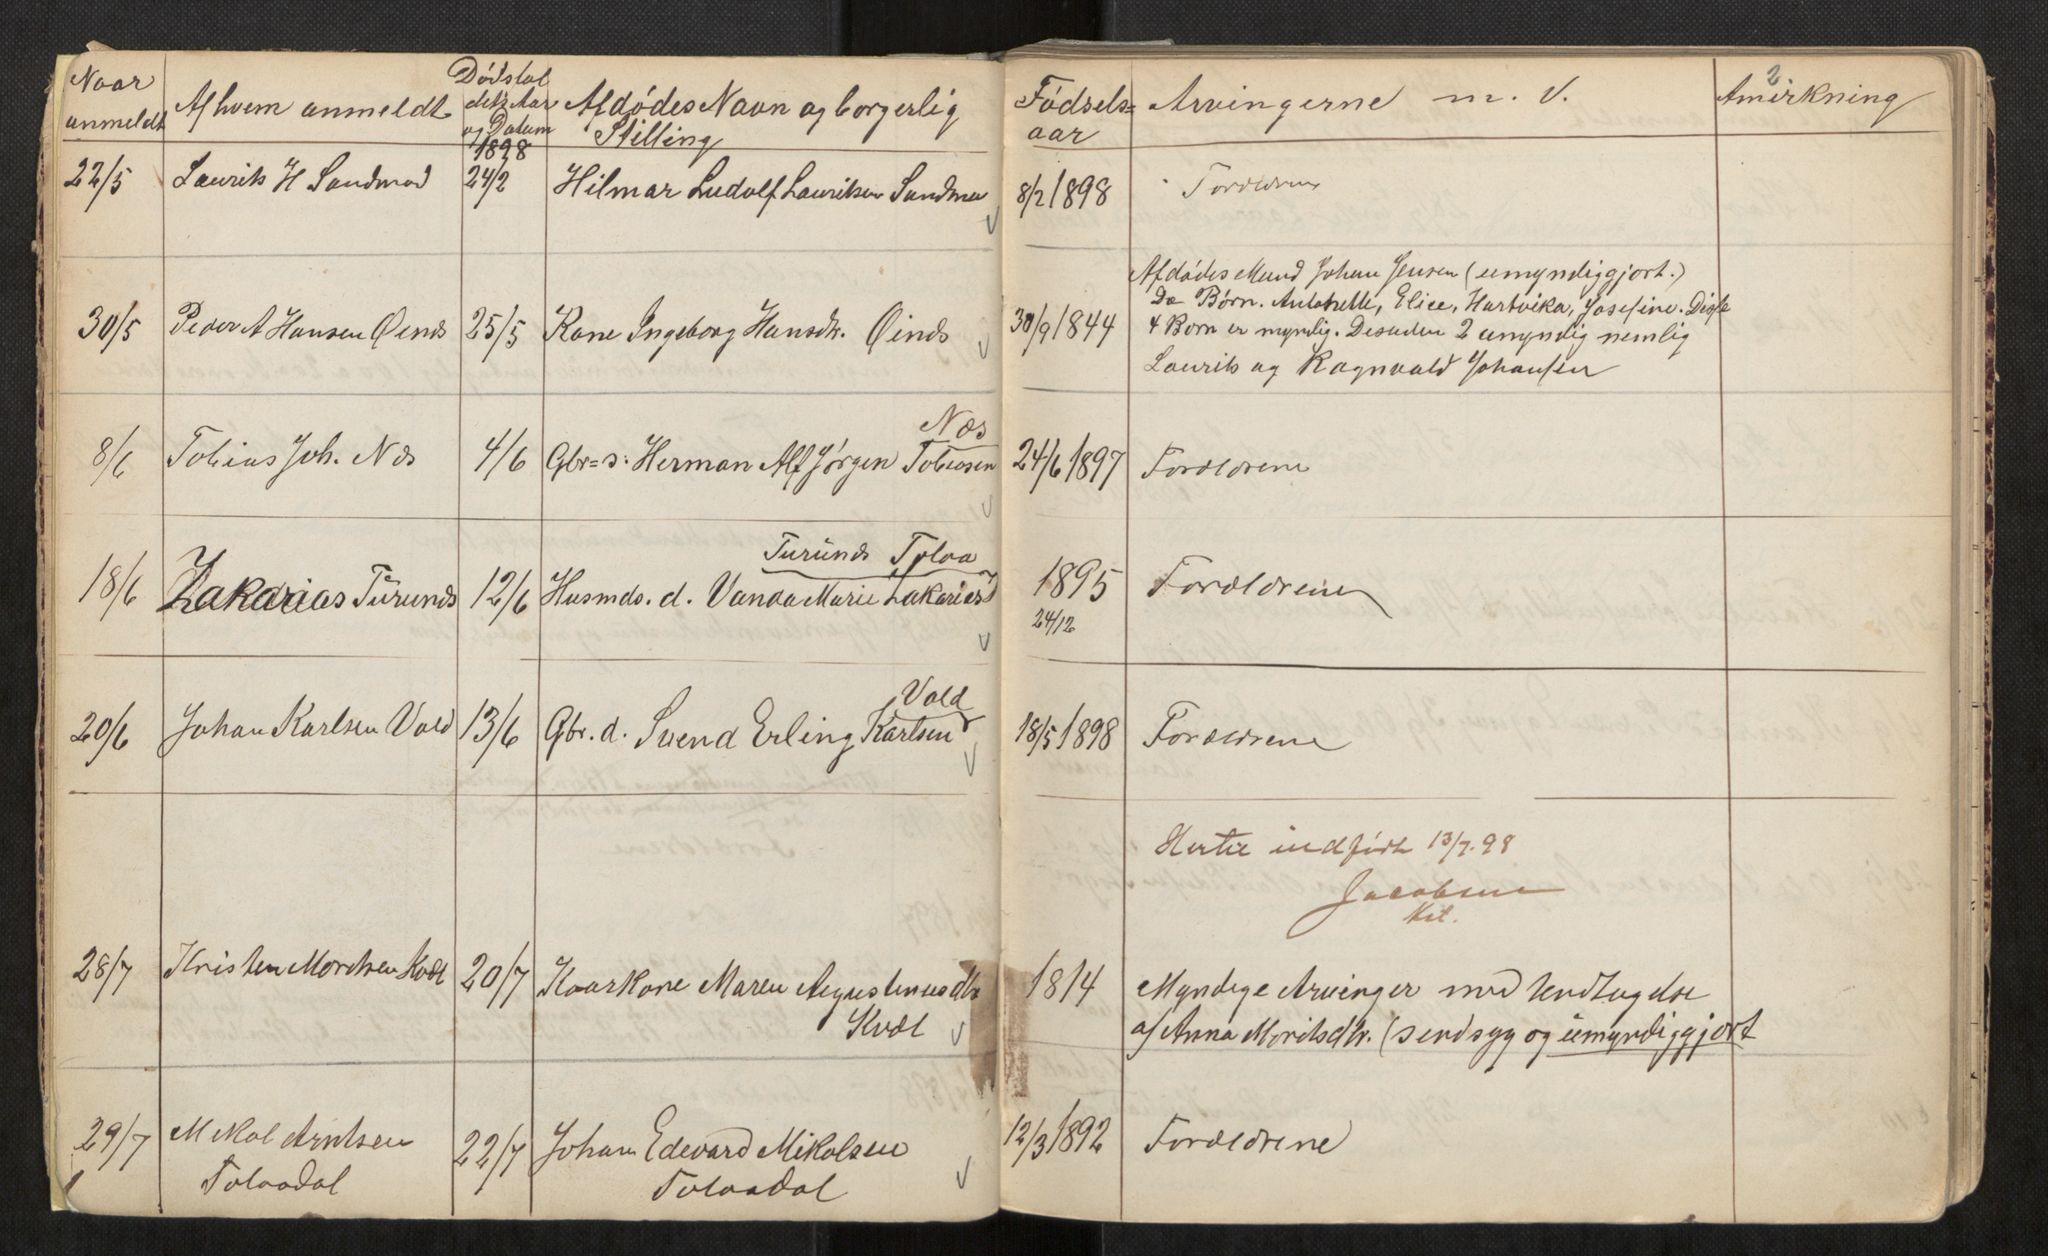 Naar
anmeldt
Af hvem anmeldt
Dødsfal
dets Aar
og Datum
1898
Afdødes Navn og borgerlig
Stilling
Fødsels=
aar
Arvingerne m. V.
2
Anmerkning
22/5 Laurits H Sandmo 24/2 Hilmar Ludolf Lauritsen Sandmo 8/2 1898 Forældrene
Afdødes Mand Johan Jensen (umyndiggjort.)
Do Børn. Antonette, Elice, Hartvika, Josefine. Disse
30/5 Peder A Hansen Øinds 25/5 Kone Ingeborg Hansdtr. Øinds 30/9 1844 4 Børn er myndig. Desuden 2 umyndig nemlig
Laurits og Ragnvald Johansen
Næs
8/6 Tobias Joh. Næs 4/6 Gbr=s: Herman Alf Jørgen Tobiasen 24/6 1897 Forældrene
Turünds Tolaa
18/6 Zakarias Türunds 12/6 Husmds. d. Vanda Marie Zakariasd 1895 Forældrene
24/12
Vald
20/6 Johan Karlsen Vald 13/6 Gbr. d. Svend Erling Karlsen 18/5 1898 Forældrene
Hertil indført 13/7. 98
Jacobsen
Kst.
28/7 Kristen Moritsen Kvæl 20/7 Kaarkone Maren Agustinusdtr 1814 Myndige Arvinger med Undtagelse
Kvæl af Anna Moritsdtr. (sindsyg og umyndiggjort
29/7 Mikal Arntsen 22/7 Johan Edevard Mikalsen 12/3 1892 Forældrene
Tolaadal Tolaadal